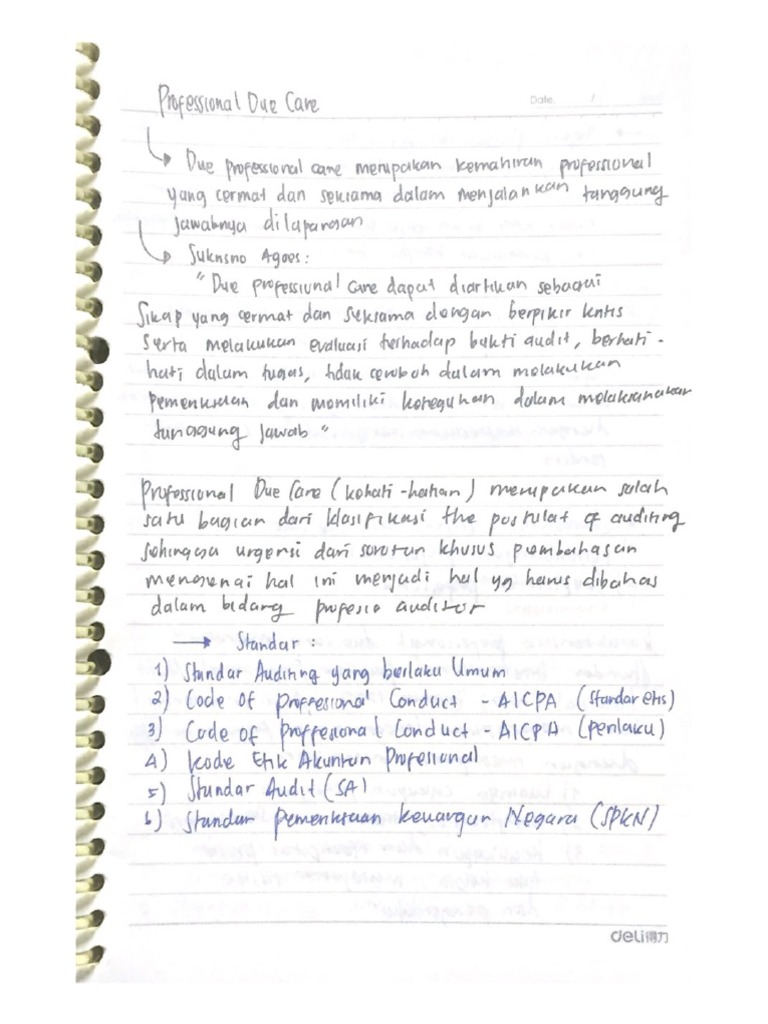 Professional Due Care
Date. /
↳ Due professional care merupakan kemahiran professional
yang cermat dan seksama dalam menjalankan tanggung
jawabnya dilapangan
↳ Sukrisno Agoes:
"Due professional care dapat diartikan sebagai
sikap yang cermat dan seksama dengan berpikir kritis
serta melakukan evaluasi terhadap bukti audit, berhati-
hati dalam tugas, tidak ceroboh dalam melakukan
pemeriksaan dan memiliki keteguhan dalam melaksanakan
tanggung jawab"
Professional Due Care (kehati-hatian) merupakan salah
satu bagian dari klasifikasi the postulat of auditing
sehingga urgensi dari sorotan khusus pembahasan
mengenai hal ini menjadi hal yg harus dibahas
dalam bidang profesio auditor
→ Standar :
1) Standar Auditing yang berlaku Umum
2) Code of proffesional Conduct - AICPA (standar etis)
3) Code of proffesional Conduct - AICPA (perilaku)
4) Kode Etik Akuntan Profesional
5) Standar Audit (SA)
6) Standar pemeriksaan keuangan Negara (SPKN)
deli得力